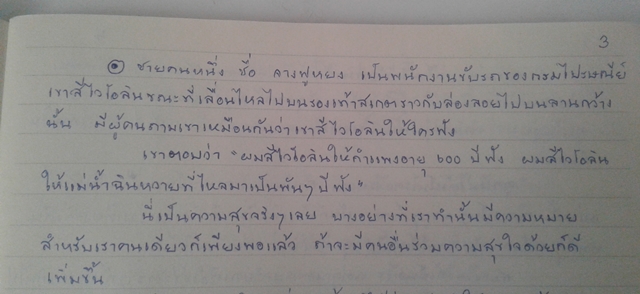 3
ชายคนหนึ่ง ชื่อ ลางฟูหยง เป็นพนักงานขับรถของกรมไปรษณีย์
เขาสีไวโอลินขณะที่เลื่อนไหลไปบนรองเท้าสเกตราวกับล่องลอยไปบนลานกว้าง
นั้น มีผู้คนถามเขาเหมือนกันว่าเขาสีไวโอลินให้ใครฟัง
เขาตอบว่า "ผมสีไวโอลินให้กำแพงอายุ ๖๐๐ ปีฟัง ผมสีไวโอลิน
ให้แม่น้ำฉินหวายที่ไหลมาเป็นพันๆ ปีฟัง"
นี่เป็นความสุขจริงๆ เลย บางอย่างที่เราทำนั้นมีความหมาย
สำหรับเราคนเดียวก็เพียงพอแล้ว ถ้าจะมีคนอื่นร่วมความสุขใจด้วยก็ดี
เพิ่มขึ้น